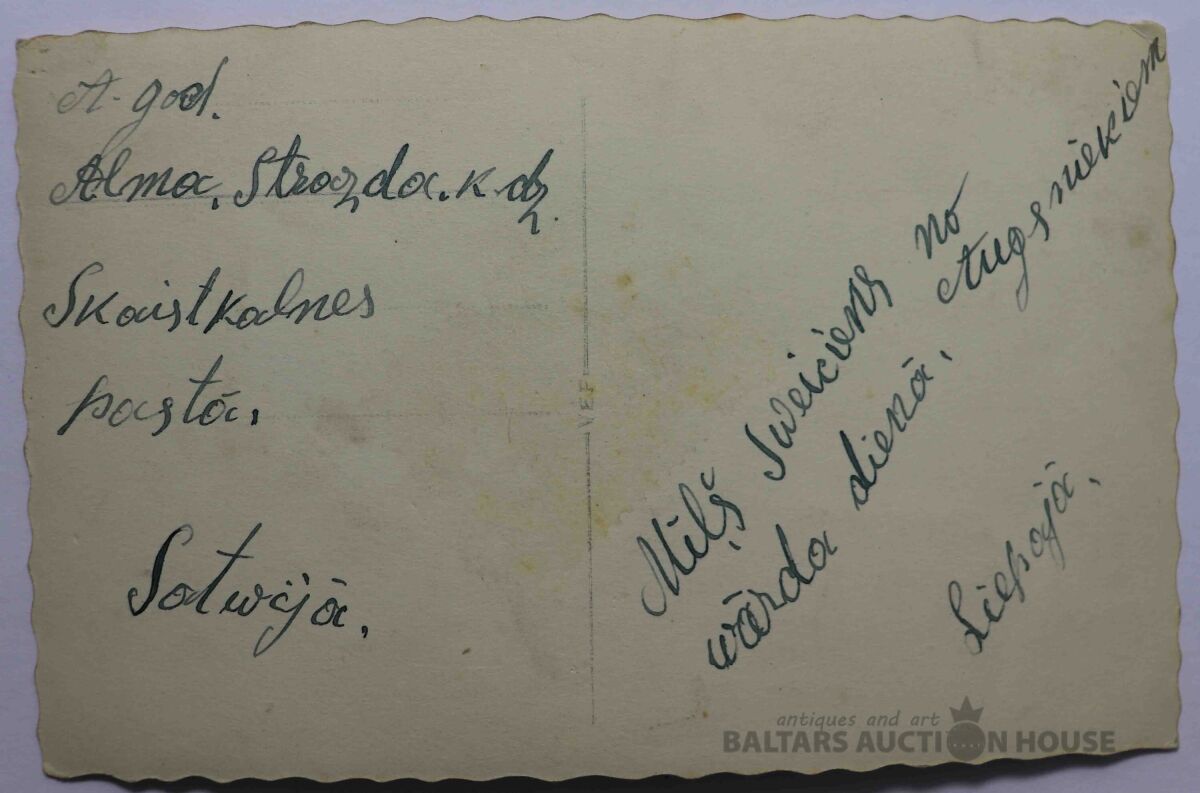 A. god.
Alma. Strazda. k. dz.
Skaistkalnes
pastā.
Latwijā.
VEF
Miļš sweiciens no
wārda dienā. Augsniekiem
Liepajā.
antiques and art
BALTARS AUCTION HOUSE